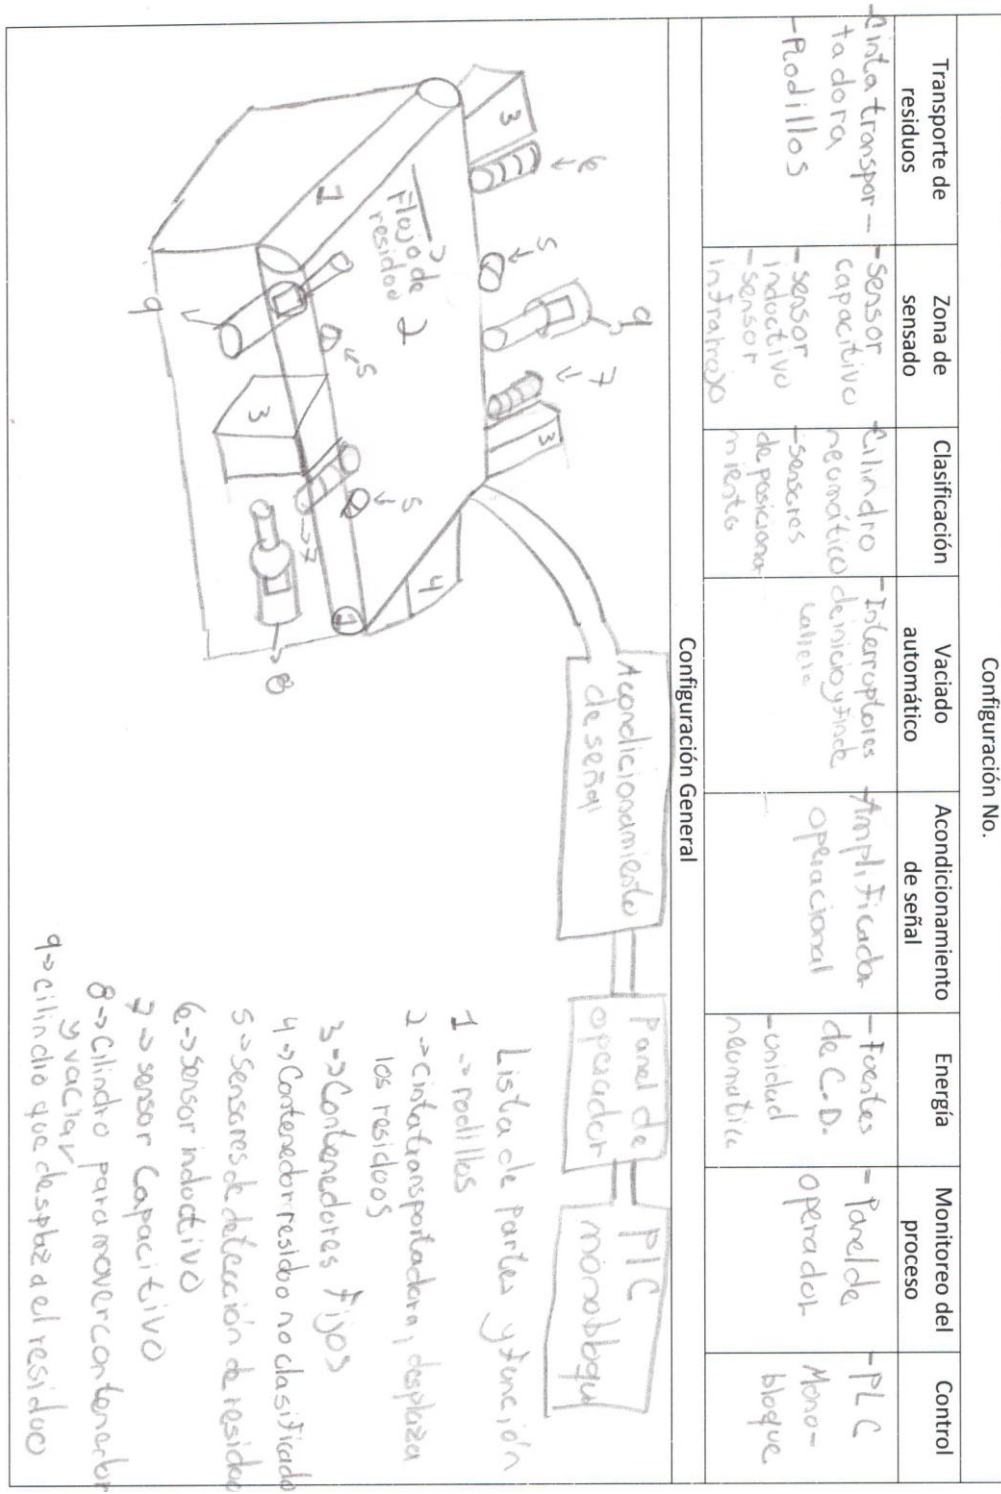 Configuración No.
Transporte de
residuos
Zona de
sensado
Clasificación
Vaciado
automático
Acondicionamiento
de señal
Energía
Monitoreo del
proceso
Control
-Cinta transpor-
tadora
-Rodillos
-sensor
capacitivo
-sensor
inductivo
-sensor
infrarrojo
-Cilindro
neumático
-sensores
de posiciona
miento
-Interruptores
de inicio y fin de
-Amplificador
operacional
-Fuentes
de C.D.
-unidad
neumatica
-Panel de
operador
-PLC
Mono-
bloque
Configuración General
3
6
5
9
7
3
1
Flujo de
residuo
2
4
9
5
3
5
7
1
8
Acondicionamiento
de señal
Panel de
operador
PLC
monobloque
Lista de partes y función
1 -> rodillos
2 -> cinta transportadora, desplaza
los residuos
3 -> Contenedores fijos
4 -> Contenedor residuo no clasificado
5 -> sensores de detección de residuo
6 -> sensor inductivo
7 -> sensor Capacitivo
8 -> Cilindro para mover contenedor
y vaciar
9 -> cilindro que desplaza el residuo